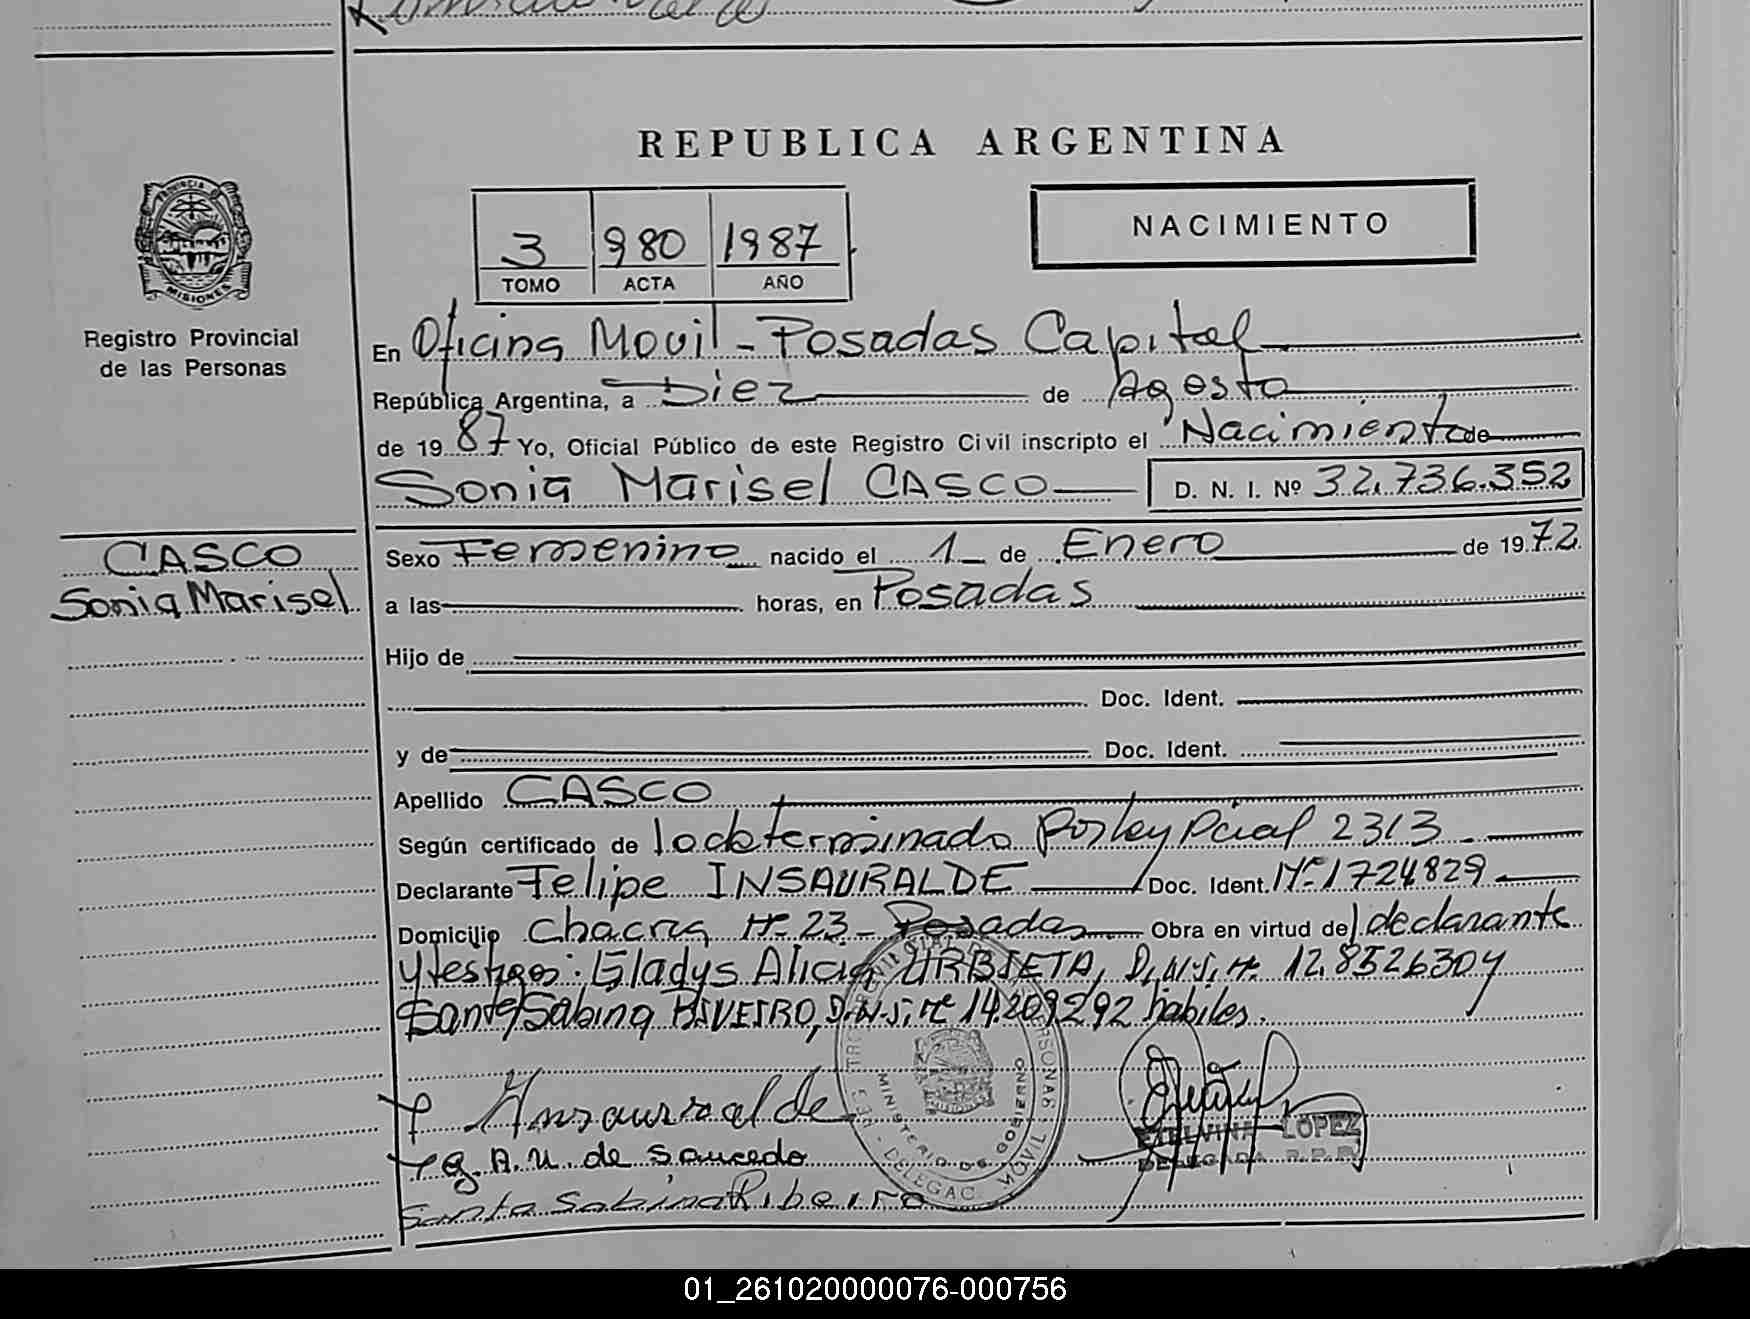 REPUBLICA ARGENTINA
PROVINCIA DE
MISIONES
Registro Provincial
de las Personas
3 980 1987
TOMO ACTA AÑO
NACIMIENTO
En Oficina Movil - Posadas Capital
República Argentina, a Diez de Agosto
de 1987 Yo, Oficial Público de este Registro Civil inscripto el Nacimiento de
Sonia Marisel CASCO D. N. I. Nº 32.736.352
CASCO
Sonia Marisel
Sexo Femenino nacido el 1 de Enero de 1972
a las horas, en Posadas
Hijo de
Doc. Ident.
y de Doc. Ident.
Apellido CASCO
Según certificado de lo determinado por ley Pcial 2313
Declarante Felipe INSAURALDE Doc. Ident. Nº 1724829
Domicilio Chacra Nº 23 - Posadas Obra en virtud de declarante
y testigos: Gladys Alicia URBIETA, D.N.I. Nº 12.852630 y
Santa Sabina RIVEIRO, D.N.I. Nº 14.209292 habiles.
Insaurralde
g. A. U. de Saucedo
Santa Sabina Ribeiro
MINISTERIO DE GOBIERNO
DELEGAC. MOVIL
LOPEZ
DELEGADA R.P.P.
01_261020000076-000756